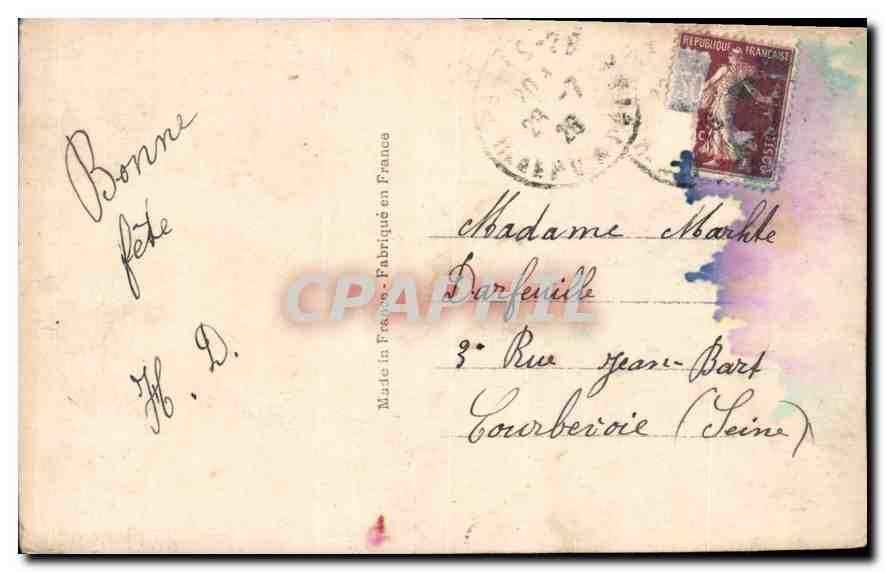 Bonne
fête
H. D.
Made in France - Fabriqué en France
28
20
28 -7
28
REPUBLIQUE FRANÇAISE
POSTES
CPAPHIL
Madame Marhte
Darfeuille
3 Rue Jean-Bart
Courbevoie (Seine)